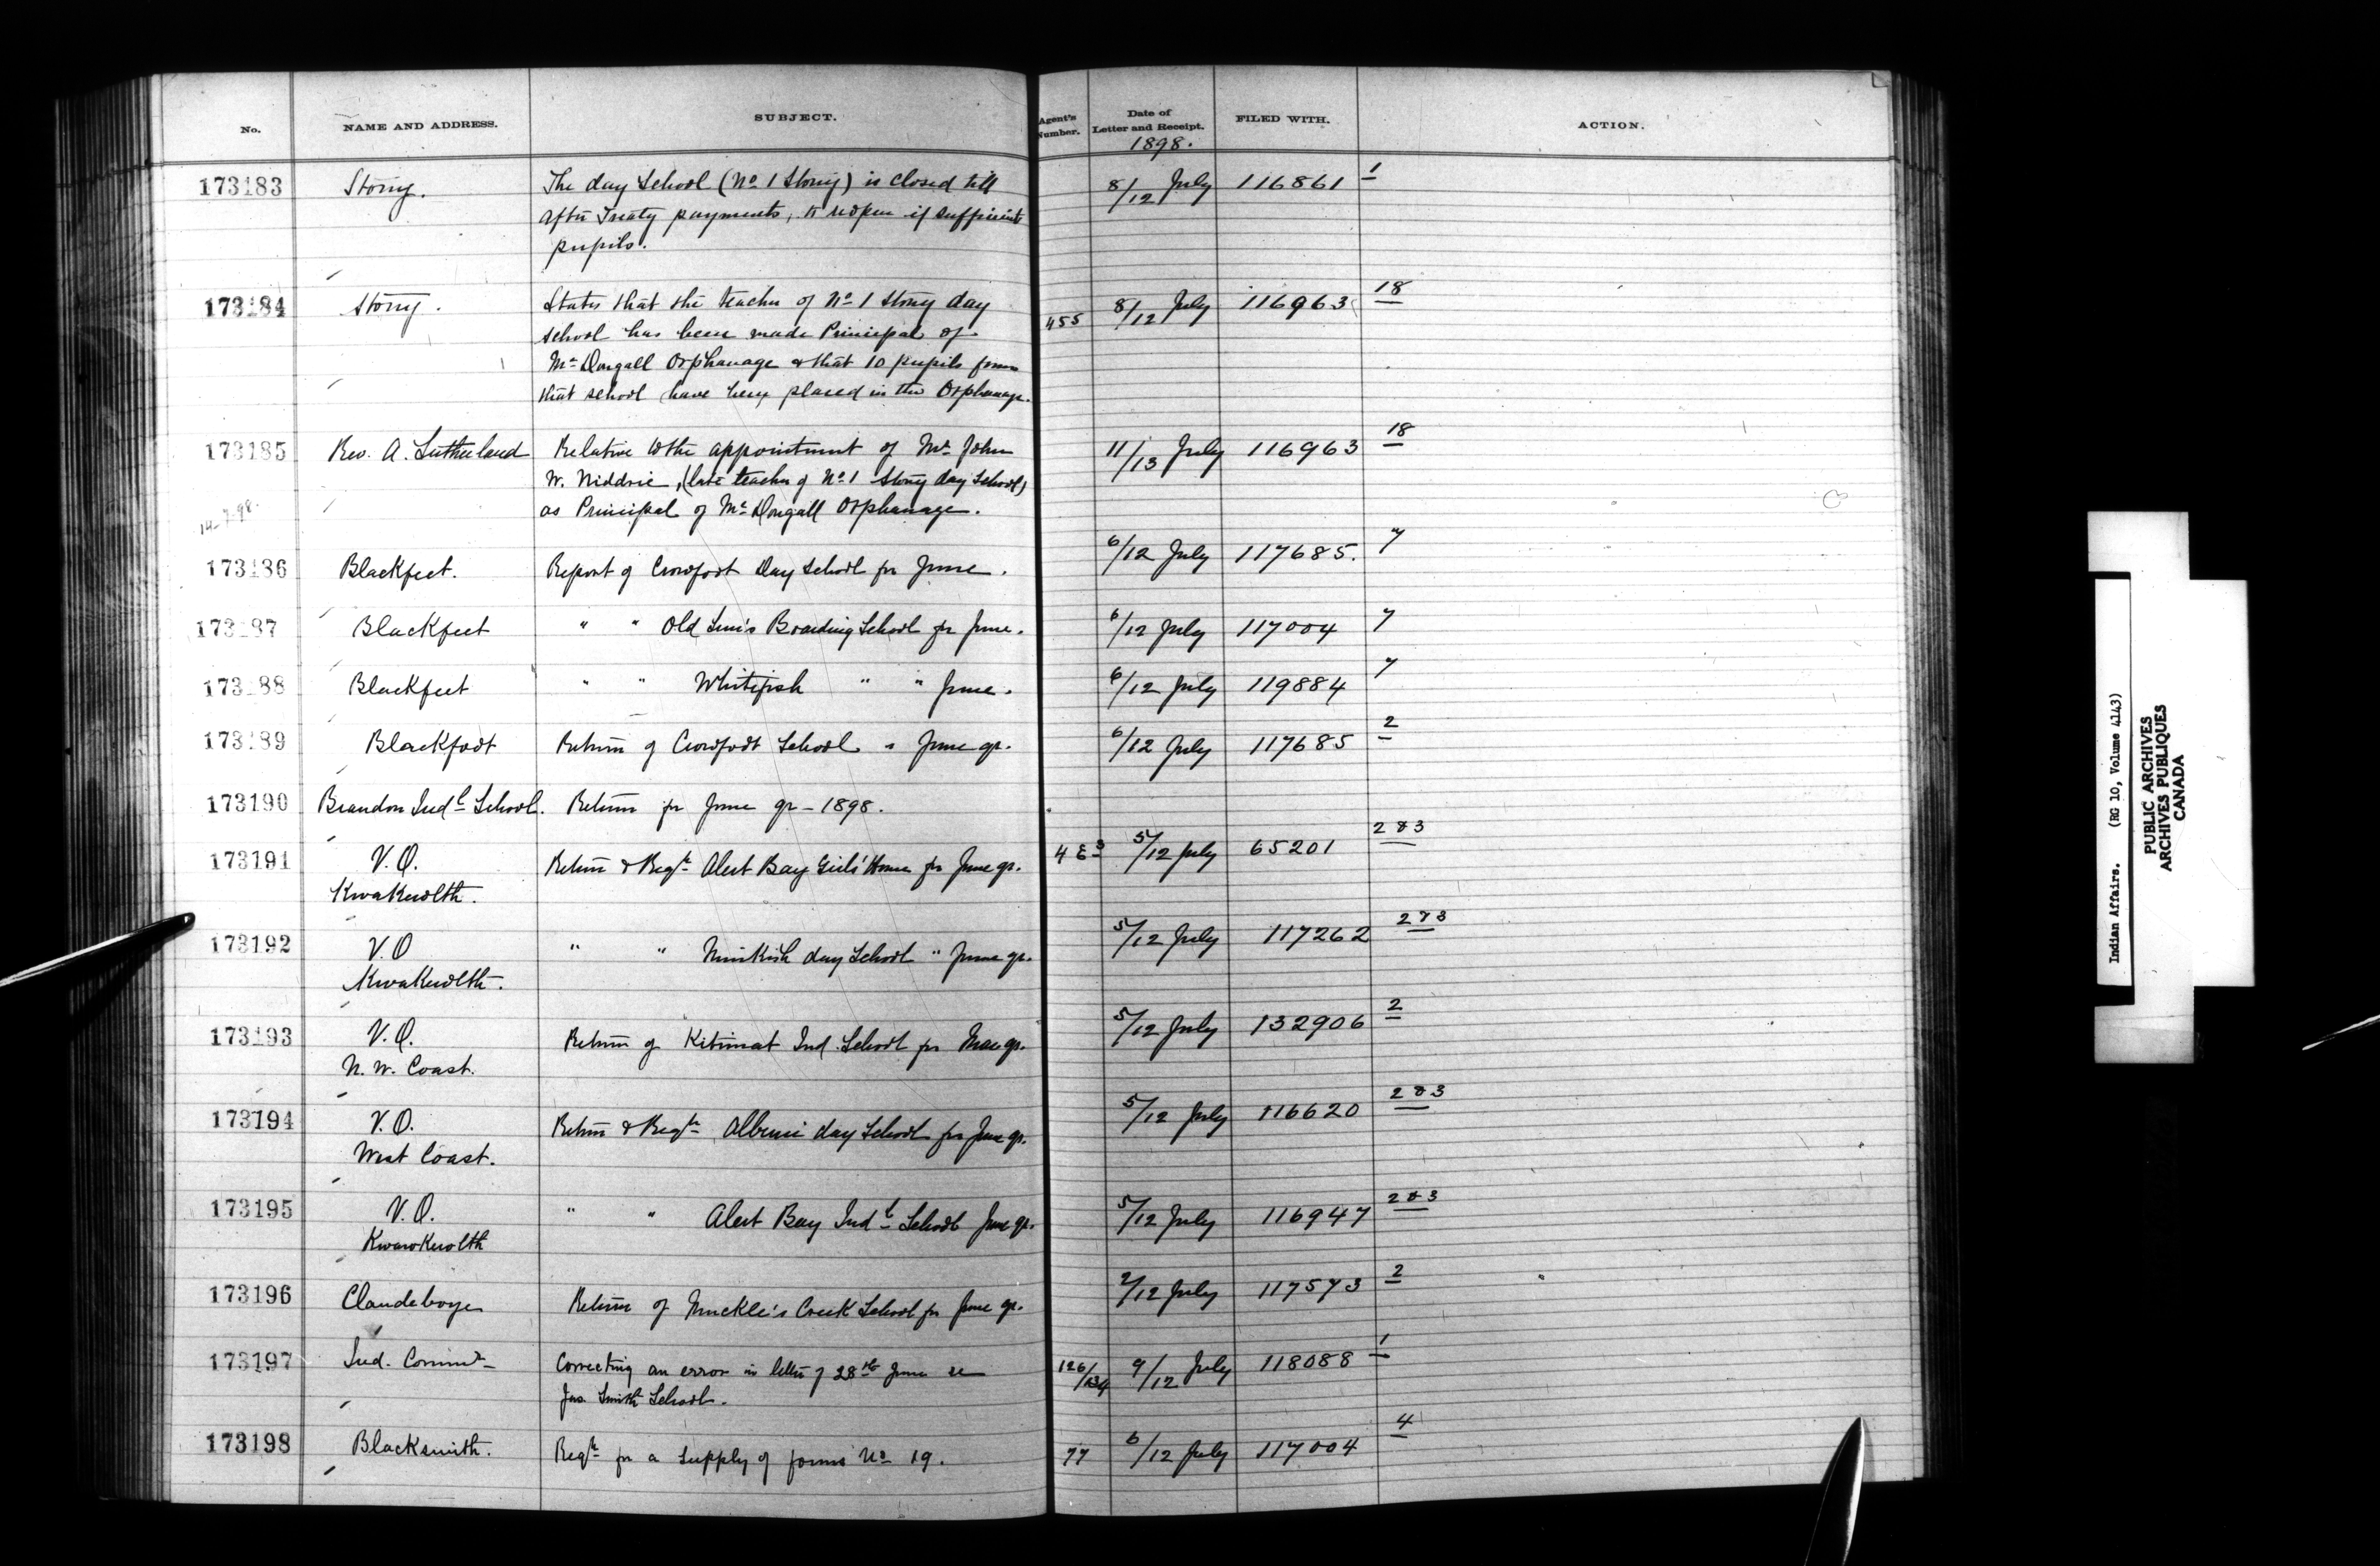 No. NAME AND ADDRESS. SUBJECT. Agent's Number. Date of Letter and Receipt. FILED WITH. ACTION.
1898.
173183 Stony. The day School (No 1 Stony) is closed till 8/12 July 116861 1
after Treaty payments, to reopen if sufficient
pupils.
173184 Stony. States that the teacher of No 1 Stony day 455 8/12 July 116963 18
school has been made Principal of
McDougall Orphanage & that 10 pupils from
that school have been placed in the Orphanage.
173185 Rev. A. Sutherland Relative to the appointment of Mr John 11/13 July 116963 18
W. Niddrie, (late teacher of No 1 Stony day School)
14-7-98. as Principal of McDougall Orphanage.
173186 Blackfeet. Report of Crowfoot Day School for June. 6/12 July 117685. 7
173187 Blackfeet " " Old Sun's Boarding School for June. 6/12 July 117004 7
173188 Blackfeet " " Whitefish " " June. 6/12 July 119884 7
173189 Blackfoot Return of Crowfoot School " June qr. 6/12 July 117685 2
173190 Brandon Indl School. Return for June qr - 1898.
173191 V.O. Return & Reqn Alert Bay Girls' Home for June qr. 5/12 July 65201 2 & 3
Kwakewlth.
173192 V.O " " Nimkish day School " June qr. 5/12 July 117262 2 & 3
Kwakewlth.
173193 V.O. Return of Kitimat Ind. School for Mar qr. 5/12 July 132906 2
N. W. Coast.
173194 V.O. Return & Reqn Alberni day School for June qr. 5/12 July 116620 2 & 3
West Coast.
173195 V.O. " " Alert Bay Indl School June qr. 5/12 July 116947 2 & 3
Kwawkewlth
173196 Clandeboye Return of Muckle's Creek School for June qr. 2/12 July 117573 2
173197 Ind. Commr Correcting an error in letter of 28th June re 126/134 9/12 July 118088 1
Jas. Smith School.
173198 Blacksmith. Reqn for a supply of forms No 19. 77 6/12 July 117004 4
Indian Affairs. (RG 10, Volume 4143)
PUBLIC ARCHIVES
ARCHIVES PUBLIQUES
CANADA